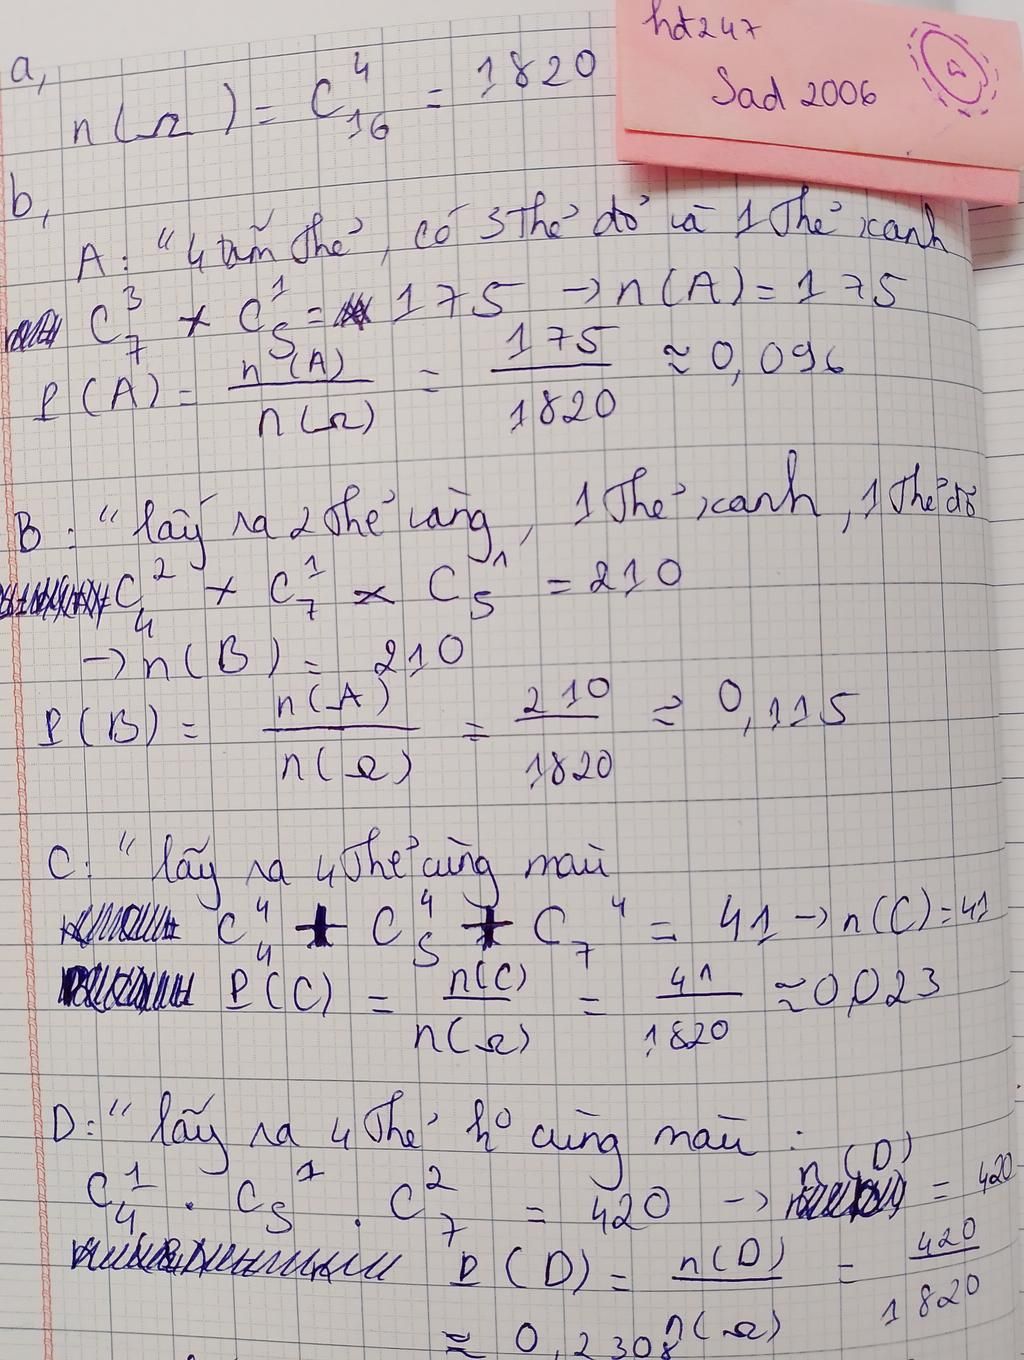 hdt247
Sad 2006
a,
n(Ω) = C⁴₁₆ = 1820
b,
A: "4 tấm thẻ, có 3 thẻ đỏ và 1 thẻ xanh
C³₇ × C¹₅ = 175 → n(A) = 175
P(A) = n(A)/n(Ω) = 175/1820 ≈ 0,096
B: "lấy ra 2 thẻ vàng, 1 thẻ xanh, 1 thẻ đỏ
C²₄ × C¹₇ × C¹₅ = 210
→ n(B) = 210
P(B) = n(A)/n(Ω) = 210/1820 ≈ 0,115
C: "lấy ra 4 thẻ cùng màu
C⁴₄ + C⁴₅ + C⁴₇ = 41 → n(C) = 41
P(C) = n(C)/n(Ω) = 41/1820 ≈ 0,023
D: "lấy ra 4 thẻ k⁰ cùng màu:
C¹₄ . C¹₅ . C²₇ = 420 → n(D) = 420
P(D) = n(D)/n(Ω) = 420/1820
≈ 0,2308